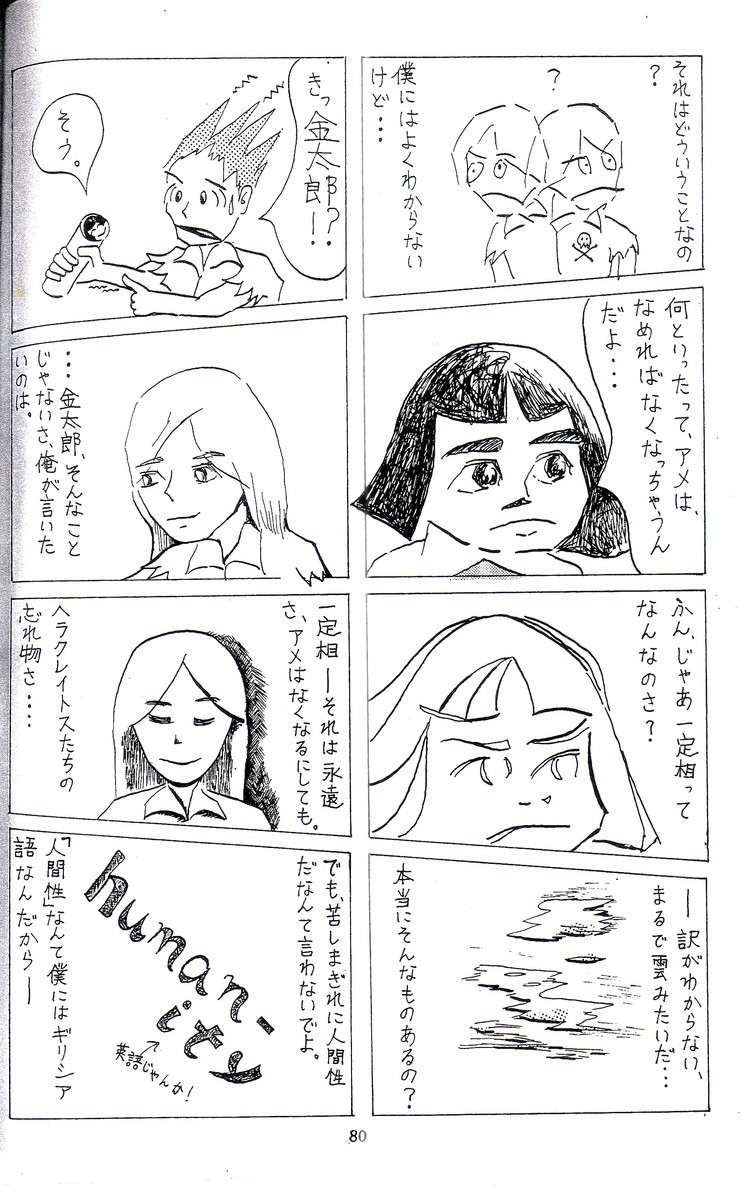 それはどういうことなの
？
？
僕にはよくわからない
けど・・・
きっ金太郎!?・・
そう。
何といったって、アメは、
なめればなくなっちゃうん
だよ・・・
・・・金太郎、そんなこと
じゃないさ、俺が言いた
いのは。
ふん、じゃあ一定相って
なんなのさ？
一定相―それは永遠
さ、アメはなくなるにしても。
ヘラクレイトスたちの
忘れ物さ・・・・
―訳がわからない、
まるで雲みたいだ・・・
本当にそんなものあるの？
でも、苦しまぎれに人間性
だなんて言わないでよ。
human-
ity
英語じゃんか！
「人間性」なんて僕にはギリシア
語なんだから―
80